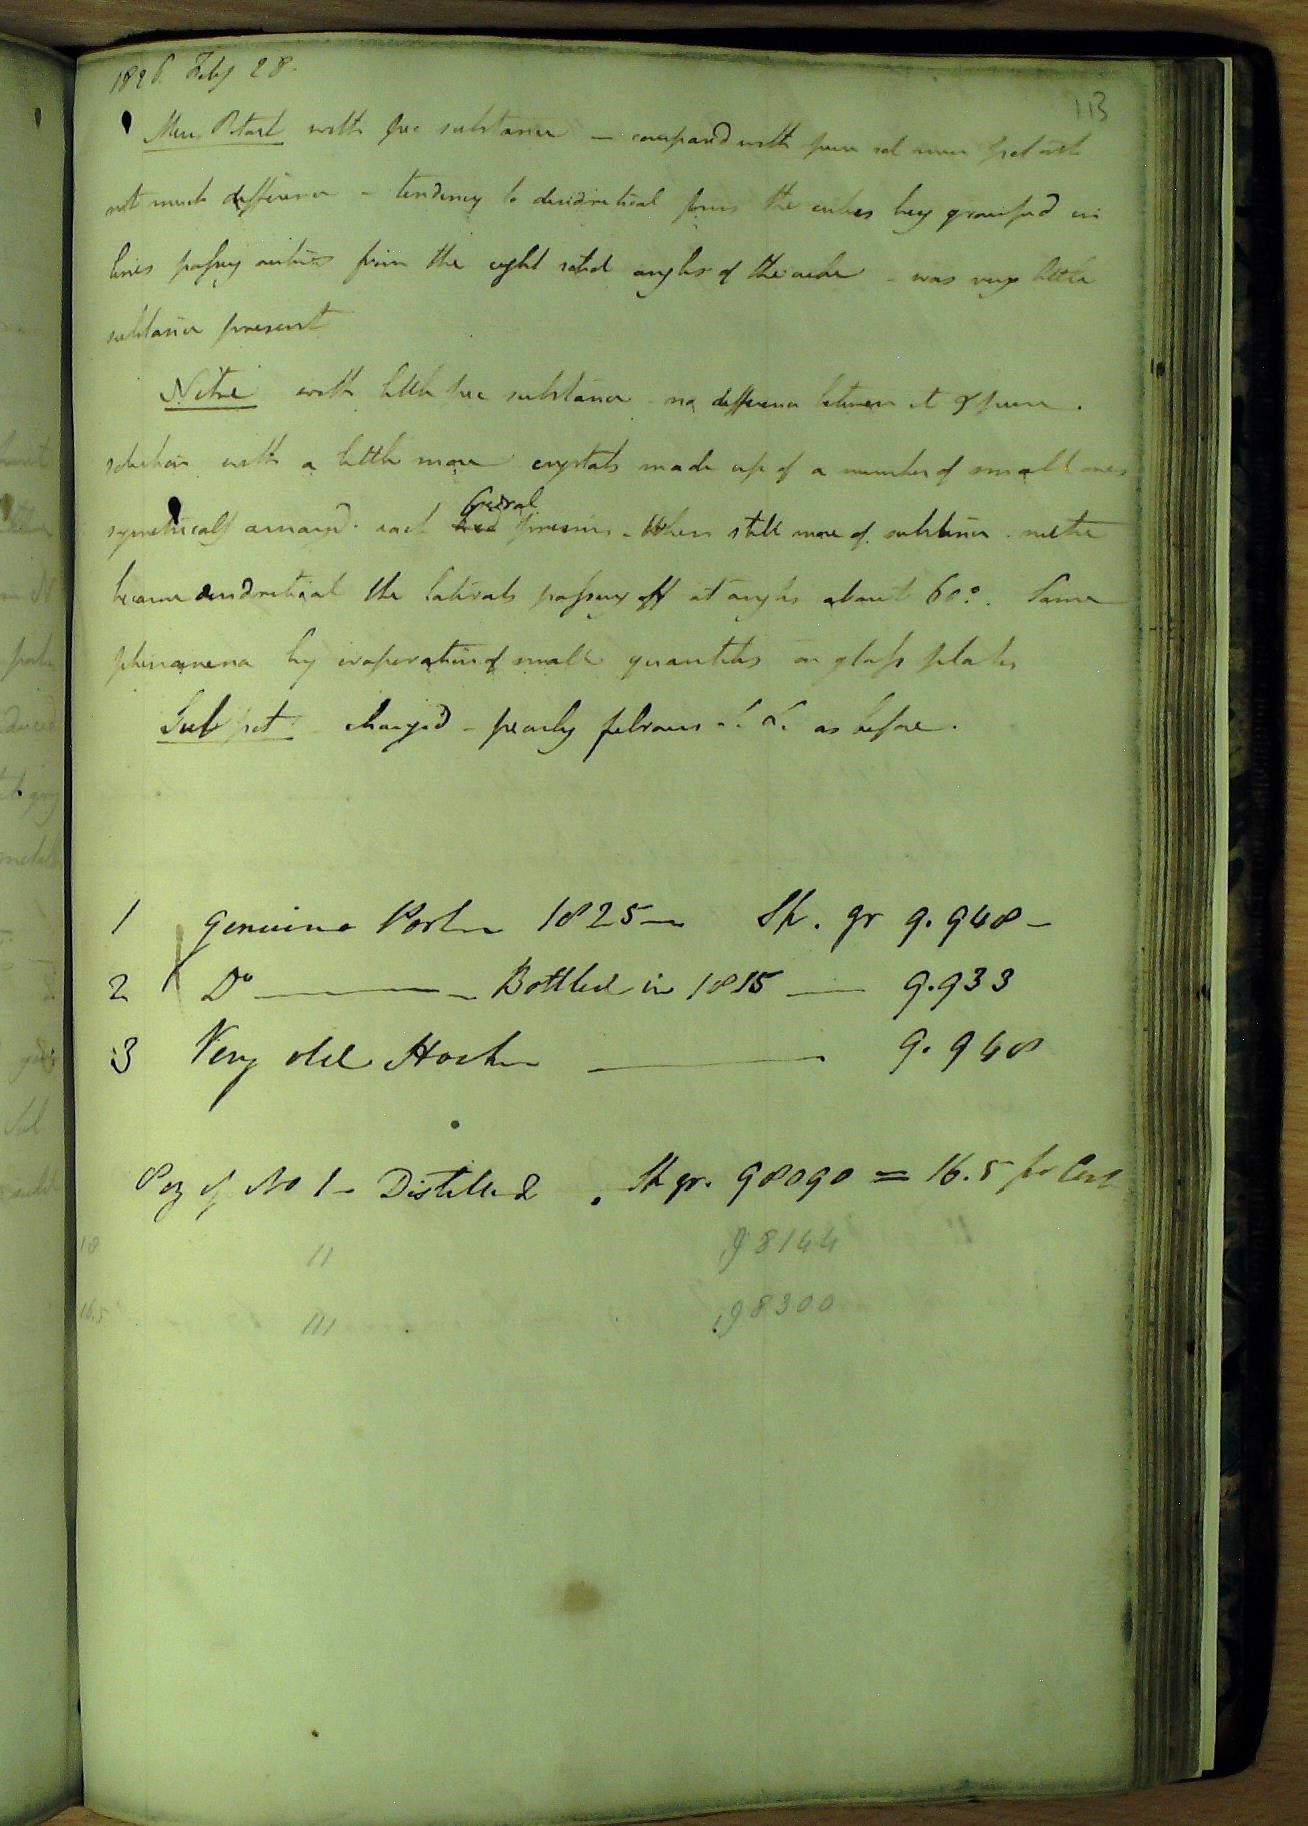 1826 Feby 28.
113
Mur Potash with pec substance — compared with pure sol mur potash
not much difference - tendency to dendritical forms the cubes being grouped in
lines passing outwards from the eight solid angles of the cube - was very little
substance present
Nitre with little pec substance no difference between it & pure.
solution with a little more crystals made up of a number of small ones
symetrically arranged. each 6 sided prisms. When still more of substance nitre
became dendritical the laterals passing off at angles about 60°. Same
phenomena by evaporation of small quantities on glass plates
Sub pot - changed - pearly fibrous &c &c as before.
1 Genuine Port 1825 — Sp. gr 9.948 -
2 Do ——— Bottled in 1815 — 9.933
3 Very old Hock ——— 9.948
8 oz of No 1 - Distilled . Sp gr. 98090 = 16.5 pr Cent
18 11 .98144
16.5 111 .98300